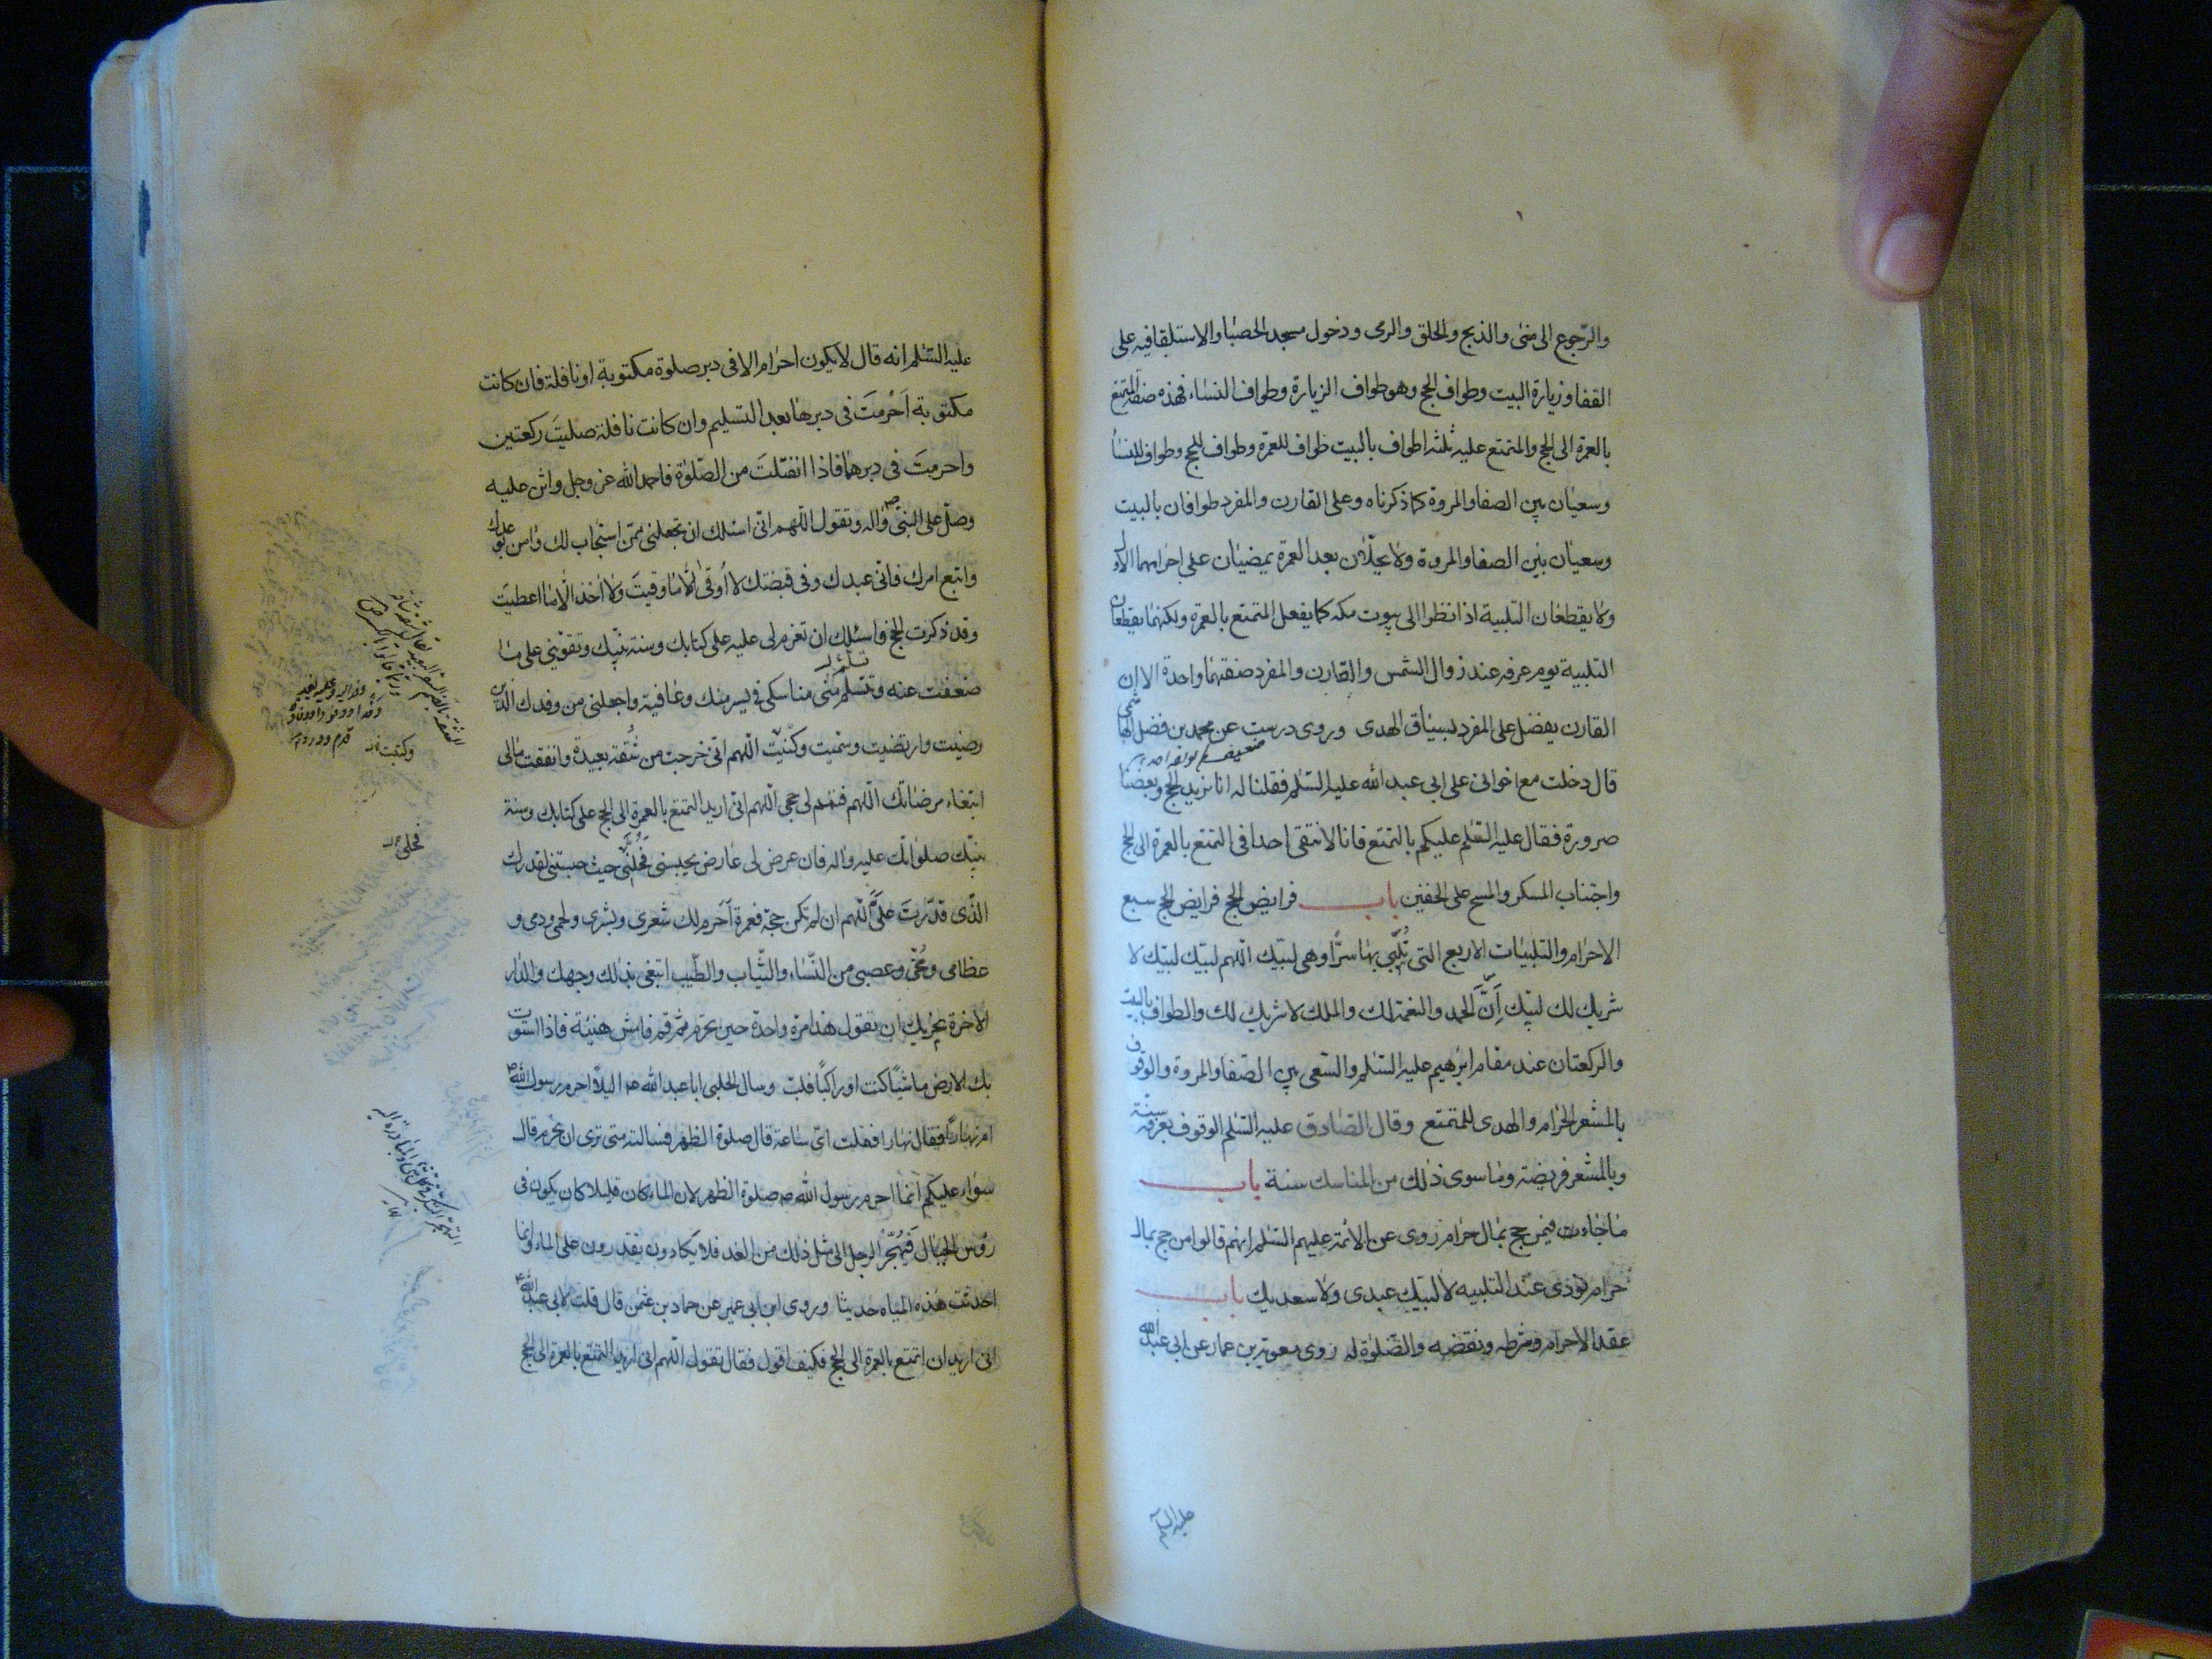 والرّجوع الى منى والذبح والحلق والرمى ودخول مسجد الحصبا والاستلقا فيه على
القفا وزيارة البيت وطواف الحج وهو طواف الزيارة وطواف النساء فهذه صفة المتمتع
بالعمرة الى الحج والمتمتع عليه ثلثة اطواف بالبيت طواف للعمرة وطواف للحج وطواف للنسأ
وسعيان بين الصفا والمروة كما ذكرناه وعلى القارن والمفرد طوافان بالبيت
وسعيان بين الصفا والمروة ولا يحلّان بعد العمرة يمضيان على احرامهما الاول
ولا يقطعان التلبية اذا نظرا الى بيوت مكه كما يفعل المتمتع بالعمرة ولكنهما يقطعان
التلبية يوم عرفه عند زوال الشمس والقارن والمفرد صفتهما واحدة الا ان
القارن يفضل على المفرد لسياق الهدى وروى درست عن محمد بن فضل الهاشمى
قال دخلت مع اخوانى على ابى عبد الله عليه السّلم فقلنا له انا نريد الحج وبعضنا
صرورة فقال عليه السّلم عليكم بالتمتع فانا لا نتقى احدا فى التمتع بالعمرة الى الحج
واجتناب المسكر والمسح على الخفين باب فرايض الحج فرايض الحج سبع
الاحرام والتلبيات الاربع التى تُلبّى بها سرًّا وهى لبيك اللهم لبيك لبيك لا
شريك لك لبيك اِنَّ الحمد والنعمة لك والملك لا شريك لك والطواف بالبيت
والركعتان عند مقام ابرهيم عليه السّلم والسّعى بين الصفا والمروة والوقوف
بالمشعر الحرام والهدى للمتمتع وقال الصّادق عليه السّلم الوقوف بعرفة سنة
وبالمشعر فريضة وما سوى ذلك من المناسك سنة باب
ما جاء فيمن حج بمال حرام روى عن الائمة عليهم السّلم انهم قالوا من حج بمال
حرام نودى عند التلبيه لا لبيك عبدى ولا سعديك باب
عقد الاحرام وشرطه ونقضه والصّلوة له روى معوية بن عمار عن ابى عبد الله
عليه السّلم
عليه السّلم انه قال لا يكون احرام الا فى دبر صلوة مكتوبة او نافلة فان كانت
مكتوبة اَحْرمتَ فى دبرها بعد التسليم وان كانت نافلة صليتَ ركعتين
واحرمتَ فى دبرهما فاذا انفتلتَ من الصّلوة فاحمد الله عز وجل واثن عليه
وصلّ على النبىّ واله وتقول اللّهم انى اسئلك ان تجعلنى ممن استجاب لك وامن بوعدك
واتبع امرك فانى عبدك وفى قبضتك لا اُوقى الّا ما وقيتَ ولا آخذ الّا ما اعطيت
وقد ذكرت الحج فاسئلك ان تعزم لى عليه على كتابك وسنة نبيك وتقوّينى على ما
ضعفت عنه وتتسلم منّى مناسكى فى يسر منك وعافية واجعلنى من وفدك الذين
رضيت وارتضيت وسمّيت وكنيت اللّهم انى خرجت من شُقة بعيدة وانفقت مالى
ابتغاء مرضاتك اللّهم فتمم لى حجى اللّهم انى اريد التمتع بالعمرة الى الحج على كتابك وسنة
نبيّك صلواتك عليه واله فان عرض لى عارض يحبسنى فحُلّنى حيث حبستنى لقدرك
الّذى قدّرتَ علىّ اللّهم ان لم تكن حجة فعمرة اَحرم لك شعرى وبشرى ولحمى ودمى و
عظامى ومُخّى وعصبى من النّساء والثّياب والطّيب ابتغى بذلك وجهك والدار
الآخرة يجزيك ان تقول هذا مرّة واحدة حين تحرم ثمّ قم فامش هنيئة فاذا استوت
بك الارض ماشيًا كنت او راكبًا فلبّ وسال الحلبى ابا عبد الله ع اليلًا احرم رسول الله
ام نهارًا فقال نهارا فقلت اىّ ساعة قال صلوة الظهر فسالته متى ترى ان نحرم قال
سواء عليكم انما احرم رسول الله ص صلوة الظهر لان الما كان قليلا كان يكون فى
روس الجبال فيُهجّر الرجل الى مثل ذلك من الغد فلا يكادون يقدرون على الماء وانما
احدثت هذه المياه حديثا وروى ابن ابى عمير عن حماد بن عثمن قال قلت لابى عبد الله
انى اريد ان اتمتع بالعمرة الى الحج فكيف اقول فقال تقول اللّهم انى اريد التمتع بالعمرة الى الحج